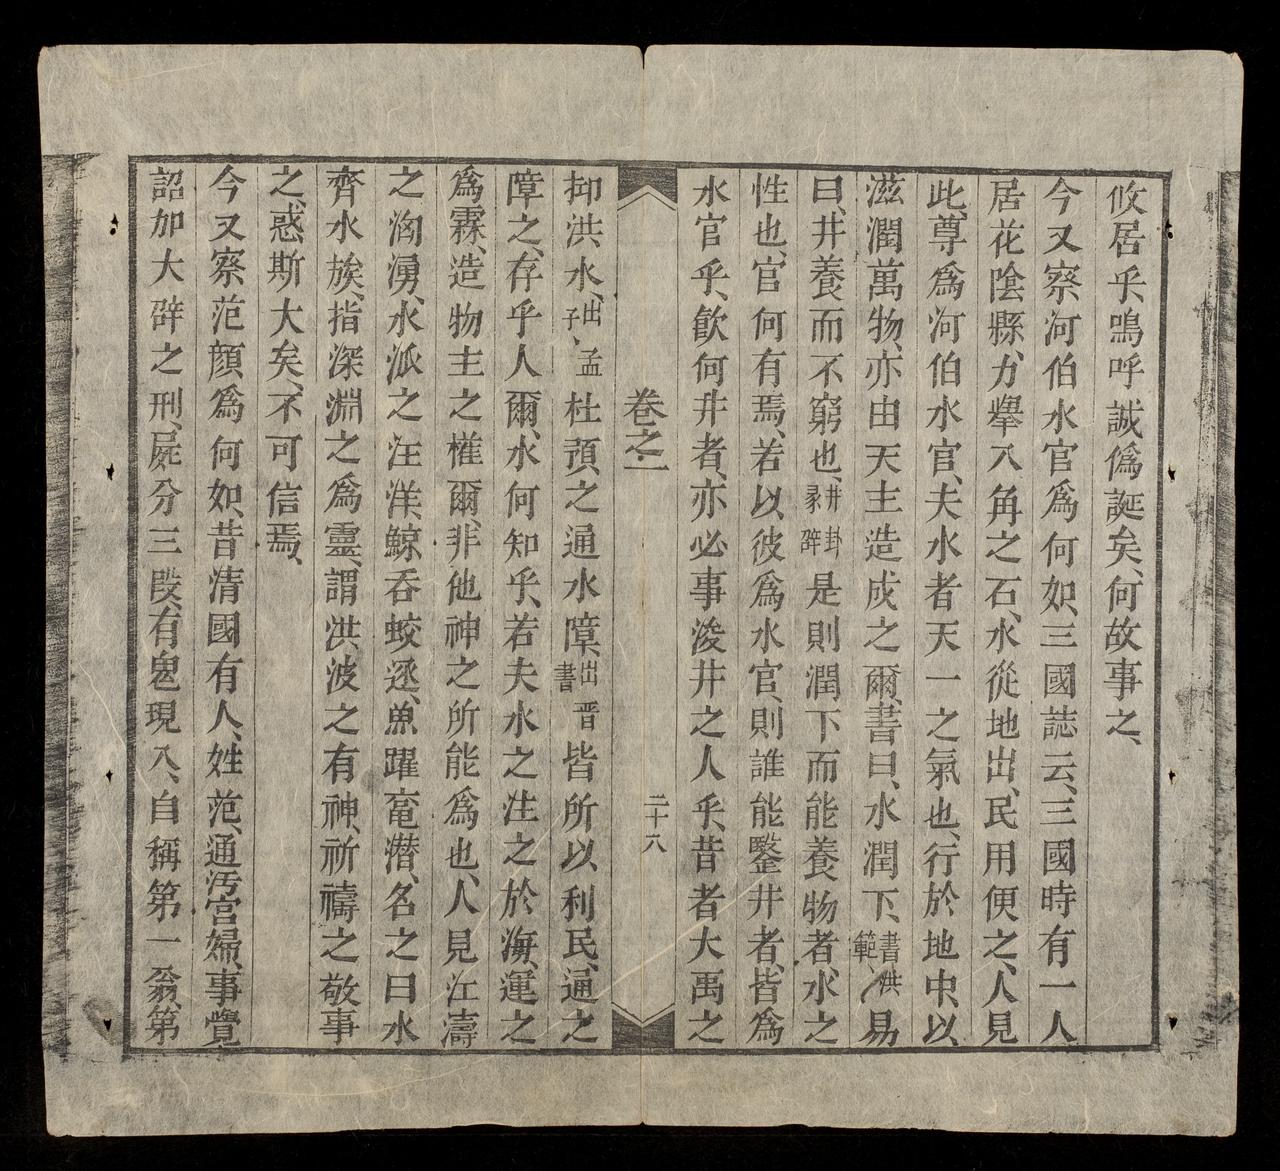 攸居乎、嗚呼、誠僞誕矣、何故事之、
今又察河伯水官爲何如、三國誌云、三國時有一人
居花陰縣、力舉八角之石、水從地出、民用便之、人見
此、尊爲河伯水官、夫水者天一之氣也、行於地中、以
滋潤萬物、亦由天主造成之爾、書曰、水潤下、書洪範、易
曰、井養而不窮也、井卦彖辭是則潤下而能養物者、水之
性也、官何有焉、若以彼爲水官、則誰能鑿井者、皆爲
水官乎、歆何井者、亦必事浚井之人乎、昔者大禹之
卷之一
二十八
抑洪水、出孟子、杜預之通水障、出晋書皆所以利民、通之
障之、存乎人爾、水何知乎、若夫水之注之於海、運之
爲霖、造物主之權爾、非他神之所能爲也、人見江濤
之洶湧、水派之汪洋、鯨吞蛟逐、魚躍竜潜、名之曰水
齊水族、指深淵之爲靈、謂洪波之有神、祈禱之敬事
之、惑斯大矣、不可信焉、
今又察范顔爲何如、昔清國有人、姓范、通汚宮婦、事覺
詔加大辟之刑、屍分三段、有鬼現入、自稱第一翁、第